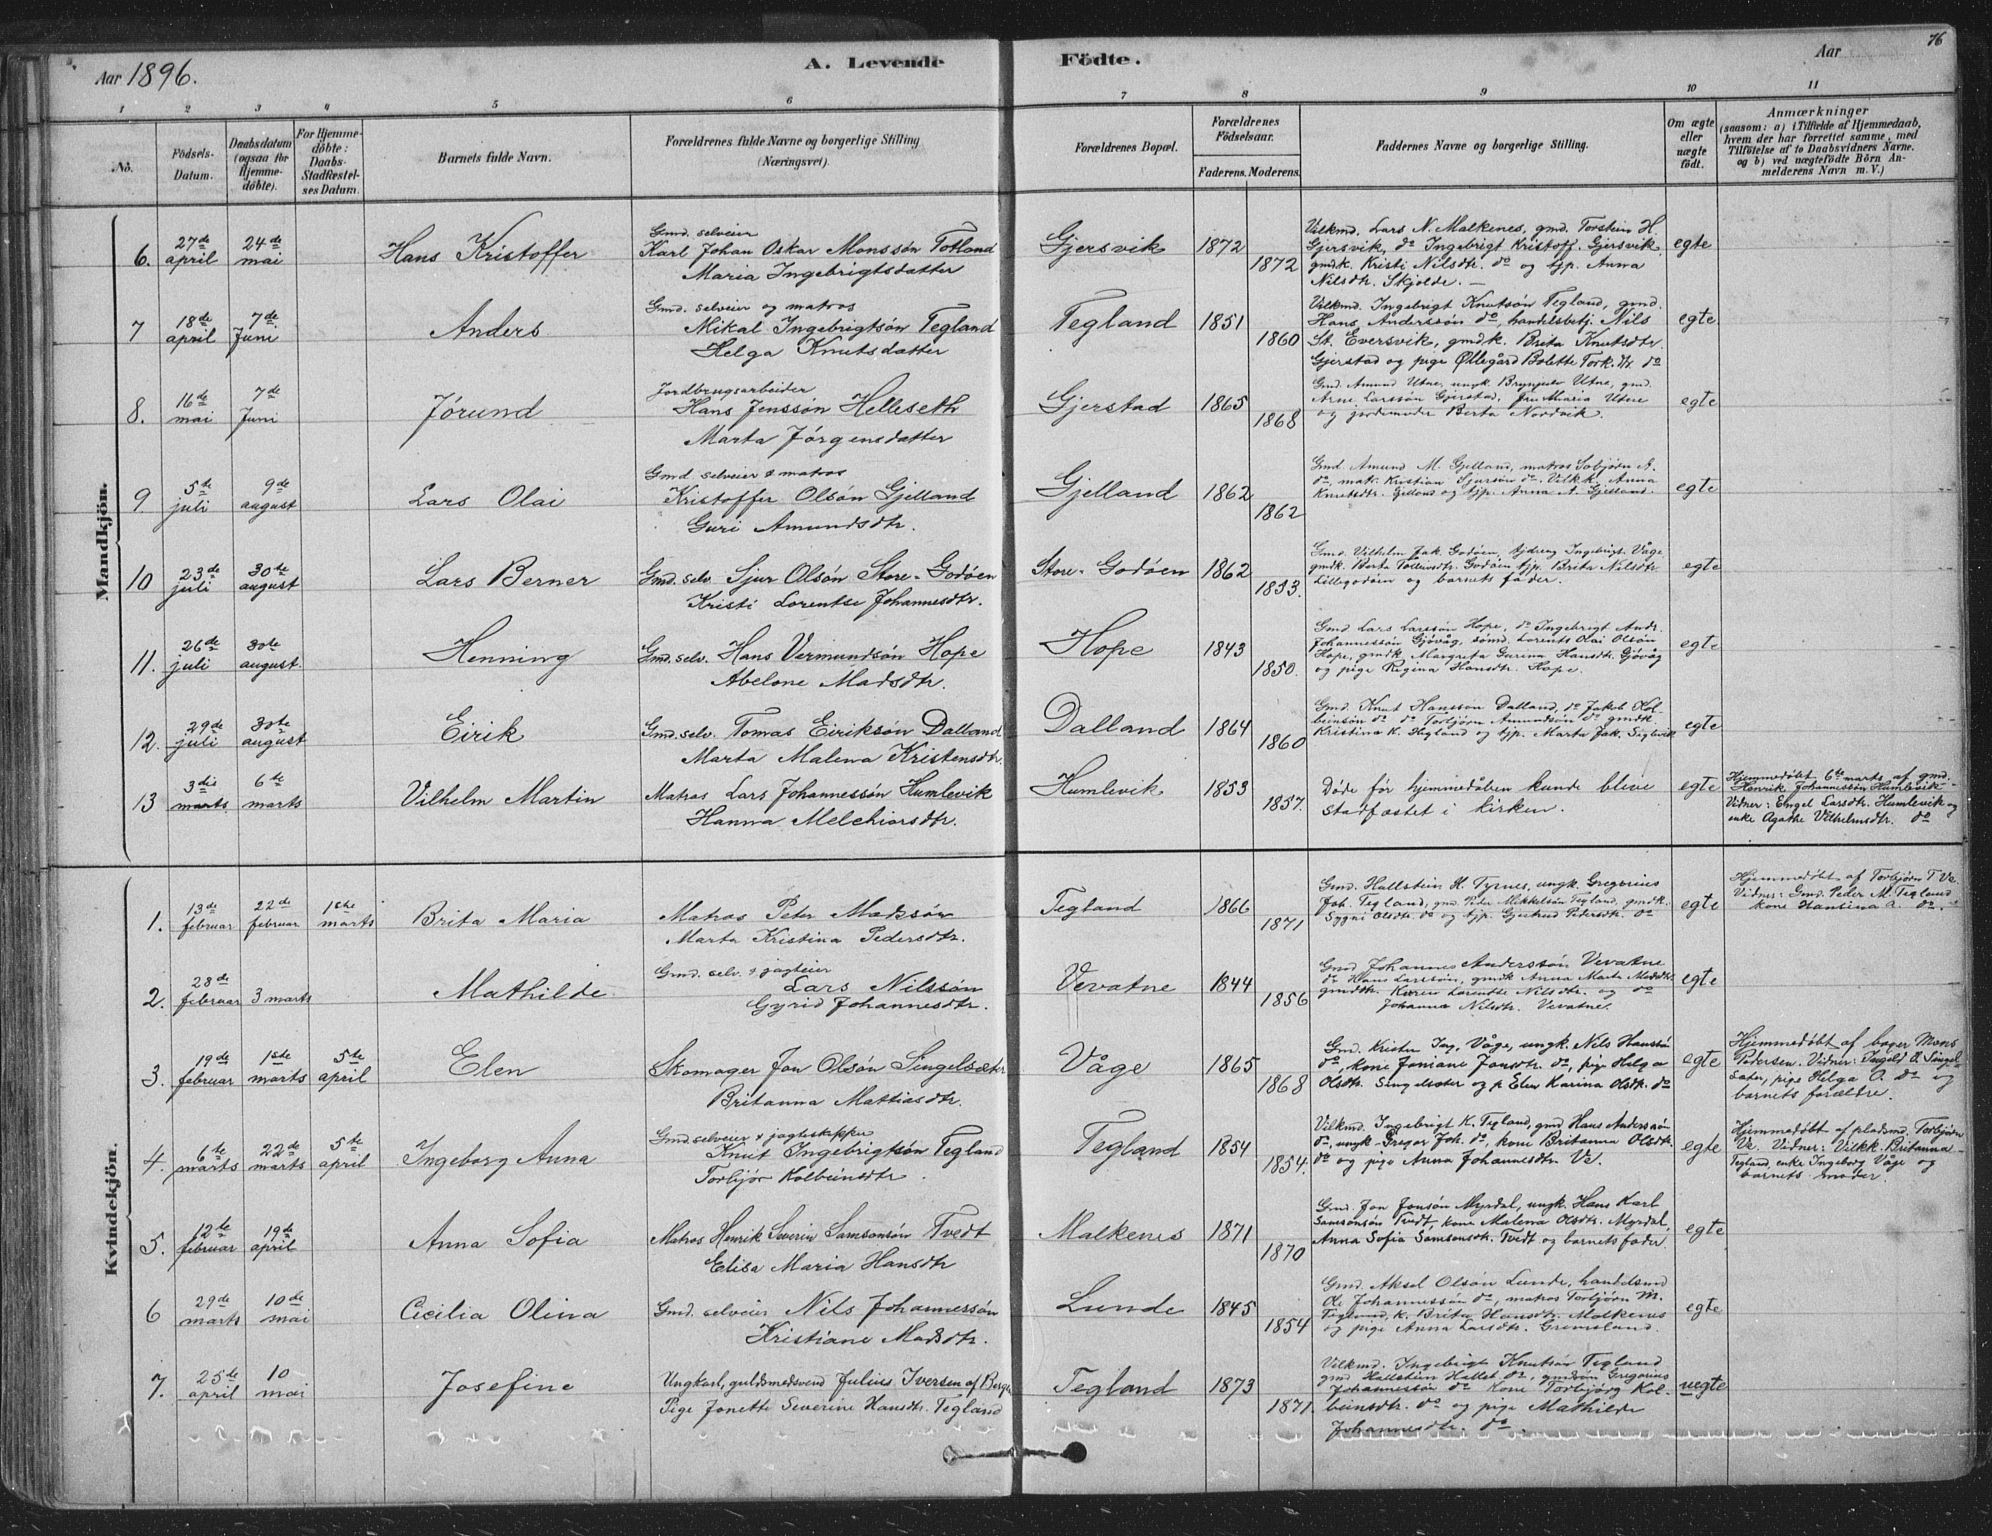 Aar 1896.
A. Levende Födte.
Aar
76
1 2 3 4 5 6 7 8 9 10 11
No.
Födsels-Datum.
Daabsdatum (ogsaa for Hjemmedöbte).
For Hjemmedöbte: Daabs-Stadfæstelses Datum.
Barnets fulde Navn.
Forældrenes fulde Navne og borgerlige Stilling (Næringsvei).
Forældrenes Bopæl.
Forældrenes Födselsaar.
Faderens. Moderens.
Faddernes Navne og borgerlige Stilling.
Om ægte eller uægte født.
Anmærkninger
(saasom: a) i Tilfælde af Hjemmedaab, hvem der har forrettet samme, med Tilføielse af to Daabsvidners Navne. og b) ved uægtefödte Börn Anmelderens Navn m. V.)
Mandkjön.
6. 27de april 24de mai Hans Kristoffer
Gmd. selveier
Karl Johan Oskar Monssön Totland
Maria Ingebrigtsdatter
Gjersvik 1872 1872
Vilkmd. Lars N. Malkenes, gmd. Torstein H.
Gjersvik, do Ingebrigt Kristoff. Gjersvik,
gmdk. Kristi Nilsdtr. do og tjp. Anna
Nilsdtr. Skjolde. —
egte
7 18de april 7de Juni Anders
Gmd. selveier og matros
Mikal Ingebrigtsön Tegland
Helga Knutsdatter
Tegland 1851 1860
Vilkmd. Ingebrigt Knutsön Tegland, gmd.
Hans Anderssön do, handelsbetj. Nils
St. Eversvik, gmdk. Brita Knutsdtr.
Gjerstad og pige Øllegård Bolette Tork. dtr. do
egte.
8. 16de mai 7de Juni Jörund
Jordbrugsarbeider
Hans Jenssön Helleseth
Marta Jörgensdatter
Gjerstad 1865 1868
Gmd. Amund Utne, ungk. Brynjulv Utne, gmd.
Arne Larssön Gjerstad, fru Maria Utne
og jordmoder Berta Nordvik.
egte
9. 5te juli 9de august Lars Olai
Gmd selveier & matros
Kristoffer Olsön Gjelland
Guri Amundsdtr.
Gjelland 1862 1862
Gmd. Amund M. Gjelland, matros Torbjörn A.
do, mat. Kristian Sjursön do. Vilkk. Anna
Knutsdtr. Gjelland og tjp. Anna A. Gjelland.
egte
10 23de juli 30te august Lars Berner
Gmd. selv. Sjur Olsön Store-Godöen
Kristi Lorentse Johannesdtr.
Store-Godöen 1862 1853.
Gmd. Vilhelm Jak. Godöen, tjdreng Ingebrigt Våge
gmdk. Berta Tollevsdtr. Godöen tjp. Brita Nilsdtr
Lillegodöen og barnets fader.
egte
11. 26de juli 30te august. Henning
Gmd. selv. Hans Vermundsön Hope
Abelone Madsdtr.
Hope 1843 1850.
Gmd Lars Larssön Hope, do Ingebrigt Andr.
Johannessön Gjövåg, sömd. Lorents Olai Olsön
Hope, gmdk. Margreta Gurina Hansdtr. Gjövåg
og pige Regina Hansdtr. Hope.
egte
12. 29de juli 30te august Eirik
Gmd. selv. Tomas Eiriksön Dalland
Marta Malena Kristensdtr.
Dalland 1864 1860
Gmd. Knut Hansson Dalland, do Jakob Kolbeinsön do do Torbjörn Amundsön do gmdk.
Kristina K. Hegland og tjp. Marta Jak. Siglevik
egte
13 3die marts 6te marts Vilhelm Martin
Matros Lars Johannessön Humlevik
Hanna Melchiorsdtr.
Humlevik 1853 1857.
Døde før hjemmedåben kunde blive
stadfæstet i kirken.
egte
Hjemmedøbt 6te marts af gmd.
Henrik Johannessön Humlevik
Vidner: Engel Larsdtr. Humlevik og
enke Agathe Vilhelmsdtr. do
Kvindekjön.
1. 13de februar 22de februar 1ste marts Brita Maria
Matros Peter Madssön
Marta Kristina Pedersdtr.
Tegland 1866 1871
Gmd. Hallstein H. Tyrnes, ungk. Gregorius
Joh. Tegland, gmd. Peter Mikkelsön Tegland, gmdk.
Sygni Olsdtr. do og tjp. Gjertrud Petersdtr. do
egte
Hjemmedøbt af Torbjörn T. Ve.
Vidner: Gmd. Peder M. Tegland
kone Hansina A. do.
2. 28de februar 3 marts Mathilde
Gmd. selv. & jagteier
Lars Nilssön
Gyrid Johannesdtr.
Vevatne 1844 1856
Gmd Johannes Anderssön Vevatne
do Hans Larssön, gmdk Anna Marta Madsdtr
gmdtr. Karen Lorentse Nilsdtr. og do
Johanna Nilsdtr. Vevatne.
egte
3. 19de februar 1ste marts 5te april Elen
Skomager Jon Olsön Singelsæter
Britanna Mattiasdtr.
Våge 1865 1868
Gmd. Krister Ing. Våge, ungk. Nils Hanssön
do, kone Joniane Jonsdtr. do, pige Helga
Olsdtr. Singelsæter og p. Elen Karina Olsdtr. do
egte
Hjemmedøbt af bager Mons
Pedersen. Vidner: Ingeld O. Singelsæter, pige Helga O. do og
barnets forældre.
4. 6te marts 22de marts 5te april Ingeborg Anna
Gmd. selveier & jagteskipper
Knut Ingebrigtsön Tegland
Torbjör Kolbeinsdtr.
Tegland 1854 1854.
Vilkmd. Ingebrigt K. Tegland, gmd Hans Anderssön
do, ungk. Gregor Joh. do, kone Britanna Olsdtr.
do og pige Anna Johannesdtr. Ve.
egte
Hjemmedøbt af pladsmd. Torbjörn
Ve. Vidner: Vilkk. Britanna
Tegland, enke Ingeborg Våge og
barnets moder.
5. 12te februar 19de april Anna Sofia
Matros Henrik Severin Samsonsön Tvedt
Elisa Maria Hansdtr
Malkenes 1871 1870
Gmd. Jon Jonsön Myrdal, ungk. Hans Karl
Samsonsön Tvedt, kone Malena Olsdtr. Myrdal,
Anna Sofia Samsonsdtr. Tvedt og barnets fader.
egte
6 29de marts 10de mai Cecilia Olina
Gmd. selveier Nils Johannessön
Kristiane Madsdtr.
Lunde 1845 1854
Gmd. Aksel Olsön Lunde, handelsmd
Ole Johannessön do, matros Torbjörn M.
Tegland, k. Brita Hansdtr. Malkenes
og pige Anna Larsdtr. Grimsland
egte
7. 25de april 10 mai Josefine
Ungkarl, guldsmedsvend Julius Iversen af Bergen
Pige Jonette Severine Hansdtr. Tegland
Tegland 1873 1871.
Vilkmd. Ingebrigt Knutsön Tegland
gmd Hallstein Hallst do, gmdsön Gregorius
Johannessön do kone Torbjörg Kolbeinsdtr. do og pige Mathilde
Johannesdtr. do.
uegte